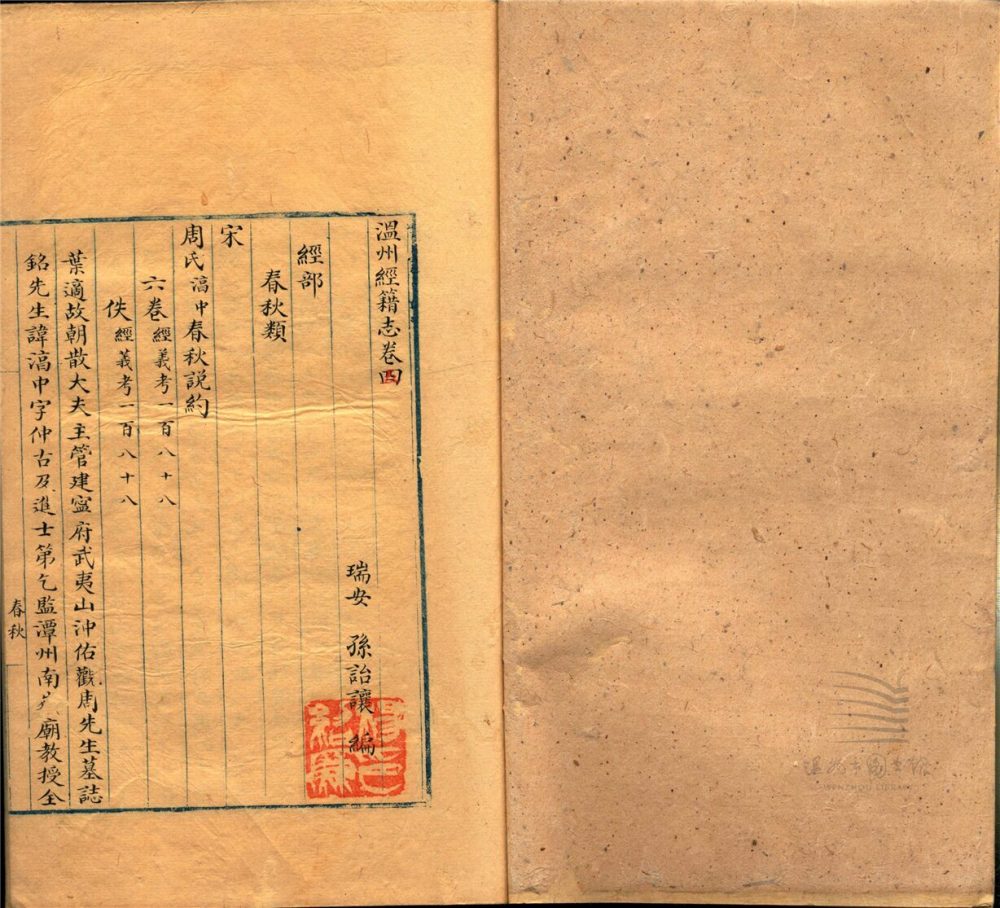 溫州經籍志卷四
瑞安 孫詒讓 編
經部
春秋類
宋
周氏湻中春秋說約
六卷 經義考一百八十八
佚 經義考一百八十八
葉適故朝散大夫主管建寧府武夷山沖佑觀周先生墓誌
銘先生諱湻中字仲古及進士第乞監潭州南岳廟教授全
春秋
温州市图书馆
WENZHOU LIBRARY